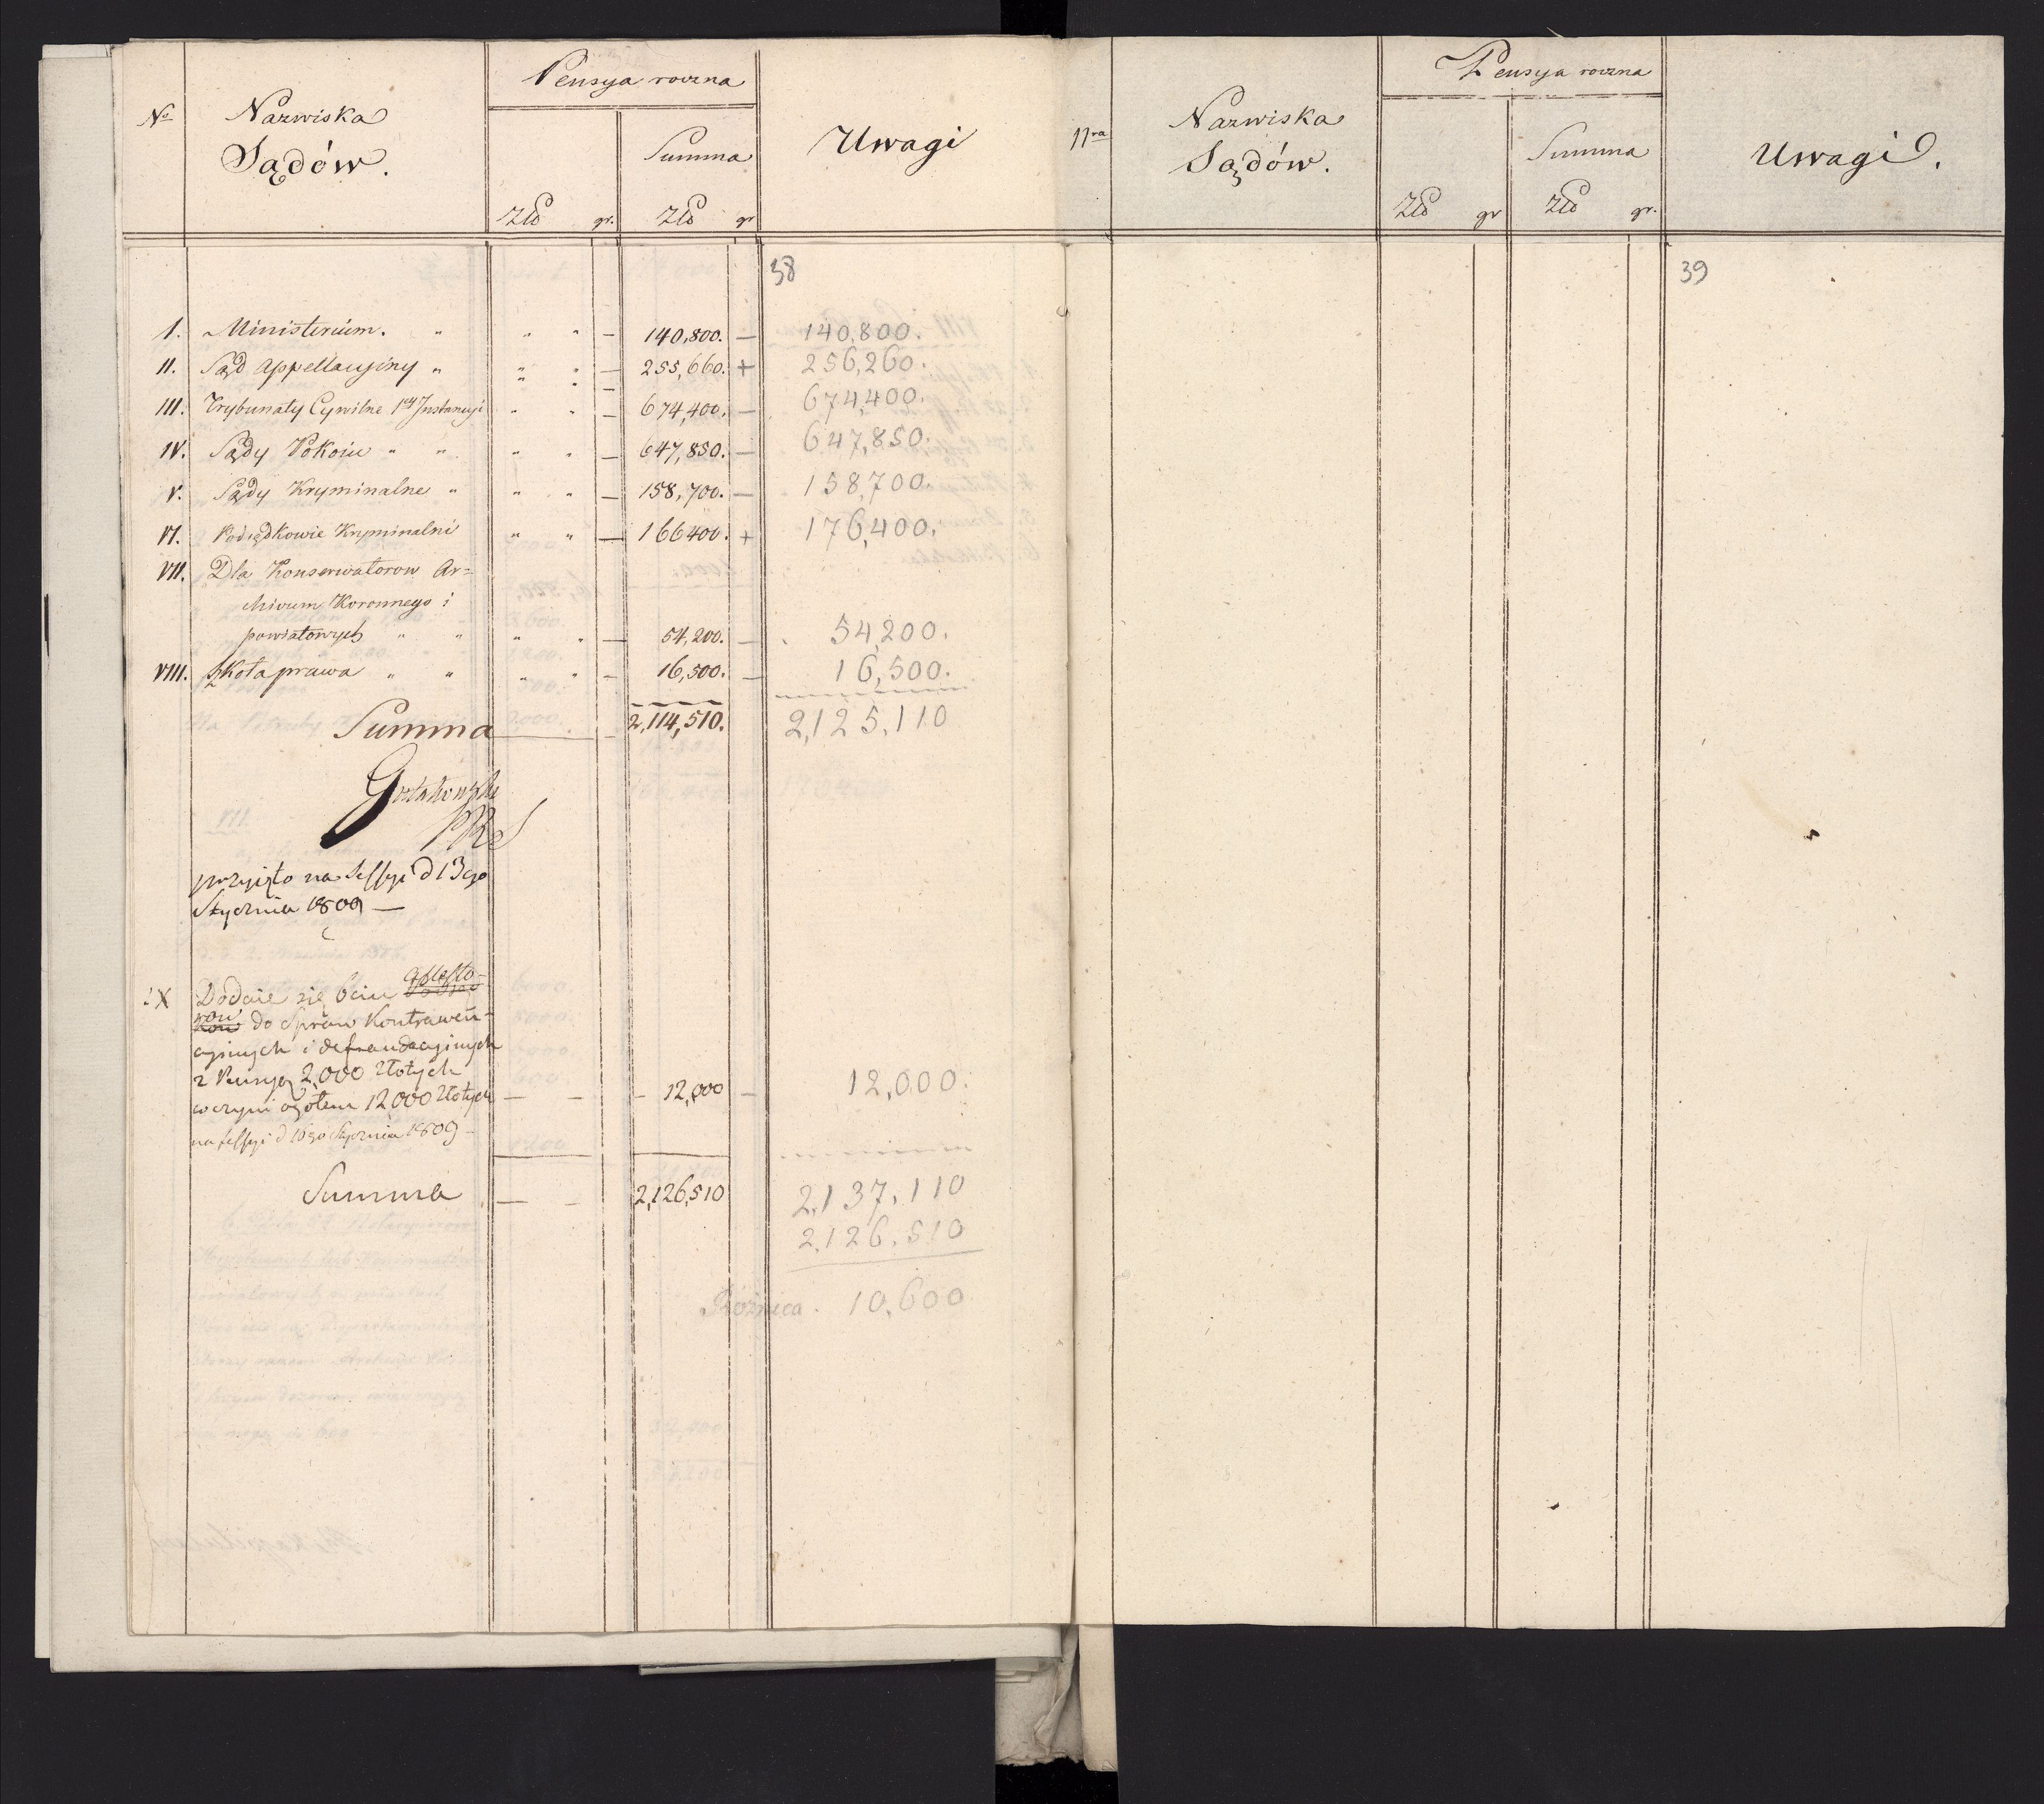 Nº Nazwiska Sądów. Pensya roczna Uwagi
Summa
Złо gr. Złо gr
38
I. Ministerium. " " " — 140,800. — 140,800.
II. Sąd Appellacyiny " " " — 255,660. + 256,260.
III. Trybunały Cywilne 1ey Instancyi " " — 674,400. — 674,400.
IV. Sądy Pokoiu " " " " — 647,850. — 647,850.
V. Sądy Kryminalne " " " — 158,700. — 158,700.
VI. Podsędkowie Kryminalni " " — 166400. + 176,400.
VII. Dla Konserwatorow Ar=
chivum Koronnego i
powiatowych " " " " — 54,200. — 54,200.
VIII. Szkoła prawa " " " " — 16,500. — 16,500.
Summa 2,114,510. 2,125,110
przyięto na Sessyi d 13go
Stycznia 1809 —
IX Dodaie się 6ciu Assesso-
row do Spraw Kontrawen-
cyinych i defraudacyinych
z Pensyą 2,000 Złotych
co czyni ogółem 12,000 Złotych — — 12,000 — 12,000.
na sessyi d 16go Stycznia 1809 —
Summa — — 2,126,510 2,137,110
2,126,510
Różnica. 10,600
Nra Nazwiska Sądów. Pensya roczna Uwagi.
Summa
Złо gr Złо gr.
39